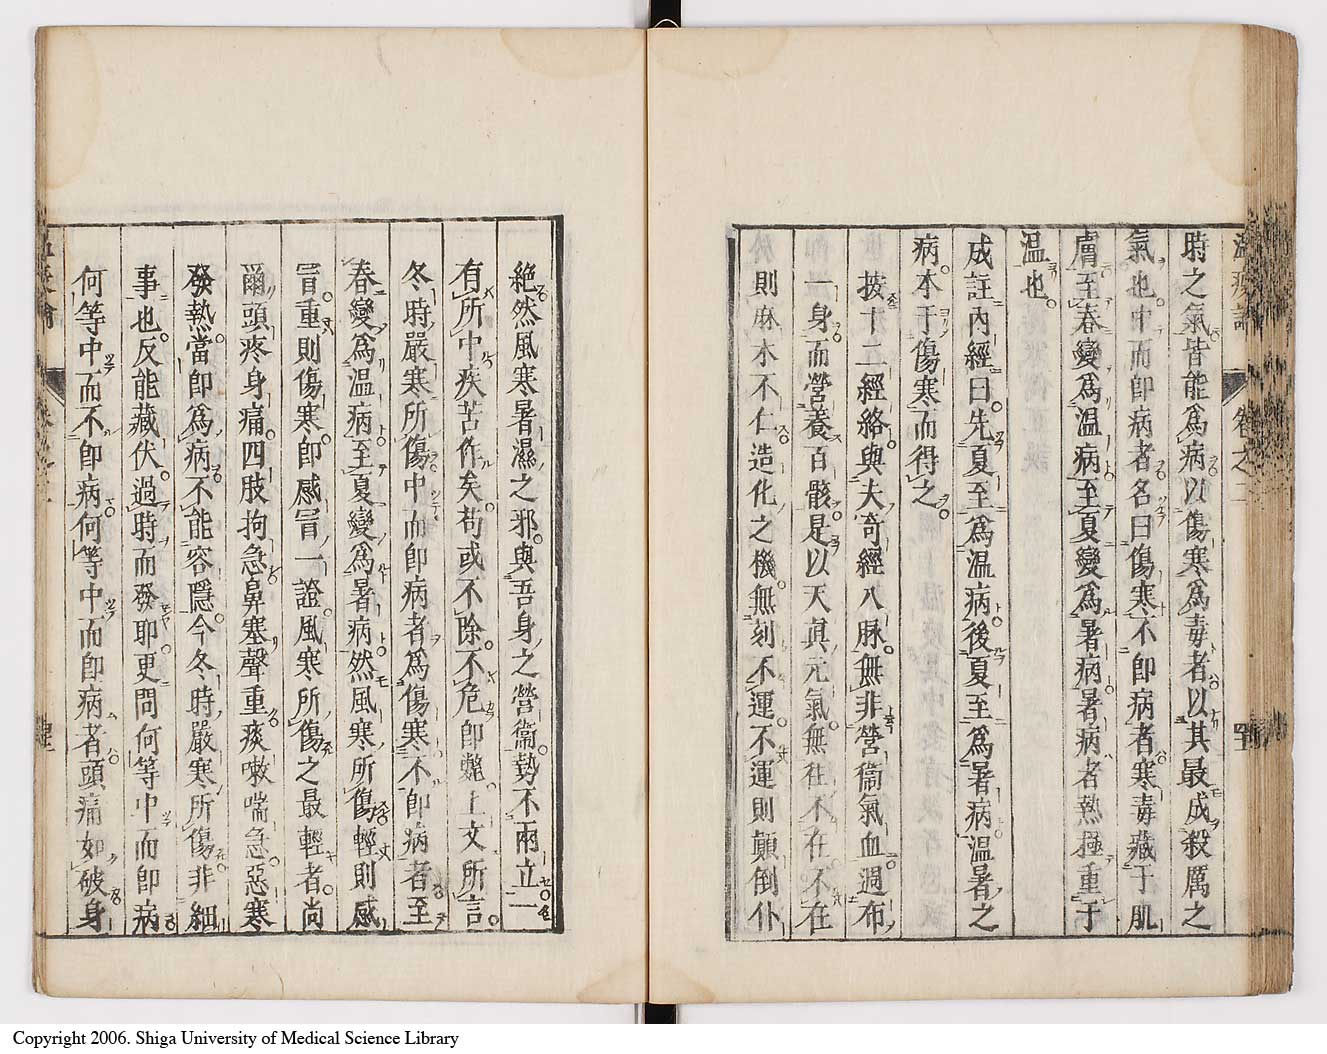 時之氣皆能爲病以傷寒爲毒者以其最成殺厲之
氣也中而即病者名曰傷寒不即病者寒毒藏于肌
膚至春變爲温病至夏變爲暑病暑病者熱極重于
温也
成註內經曰先夏至爲温病後夏至爲暑病温暑之
病本于傷寒而得之
按十二經絡與夫奇經八脉無非營衞氣血週布
一身而營養百骸是以天眞元氣無往不在不在
則麻木不仁造化之機無刻不運不運則顛倒仆
絶然風寒暑濕之邪與吾身之營衞勢不兩立一
有所中疾苦作矣苟或不除不危即斃上文所言
冬時嚴寒所傷中而即病者爲傷寒不即病者至
春變爲温病至夏變爲暑病然風寒所傷輕則感
冒重則傷寒即感冒一證風寒所傷之最輕者尚
爾頭疼身痛四肢拘急鼻塞聲重痰嗽喘急惡寒
發熱當即爲病不能容隱今冬時嚴寒所傷非細
事也反能藏伏過時而發耶更問何等中而即病
何等中而不即病何等中而即病者頭痛如破身
卷之二
Copyright 2006. Shiga University of Medical Science Library